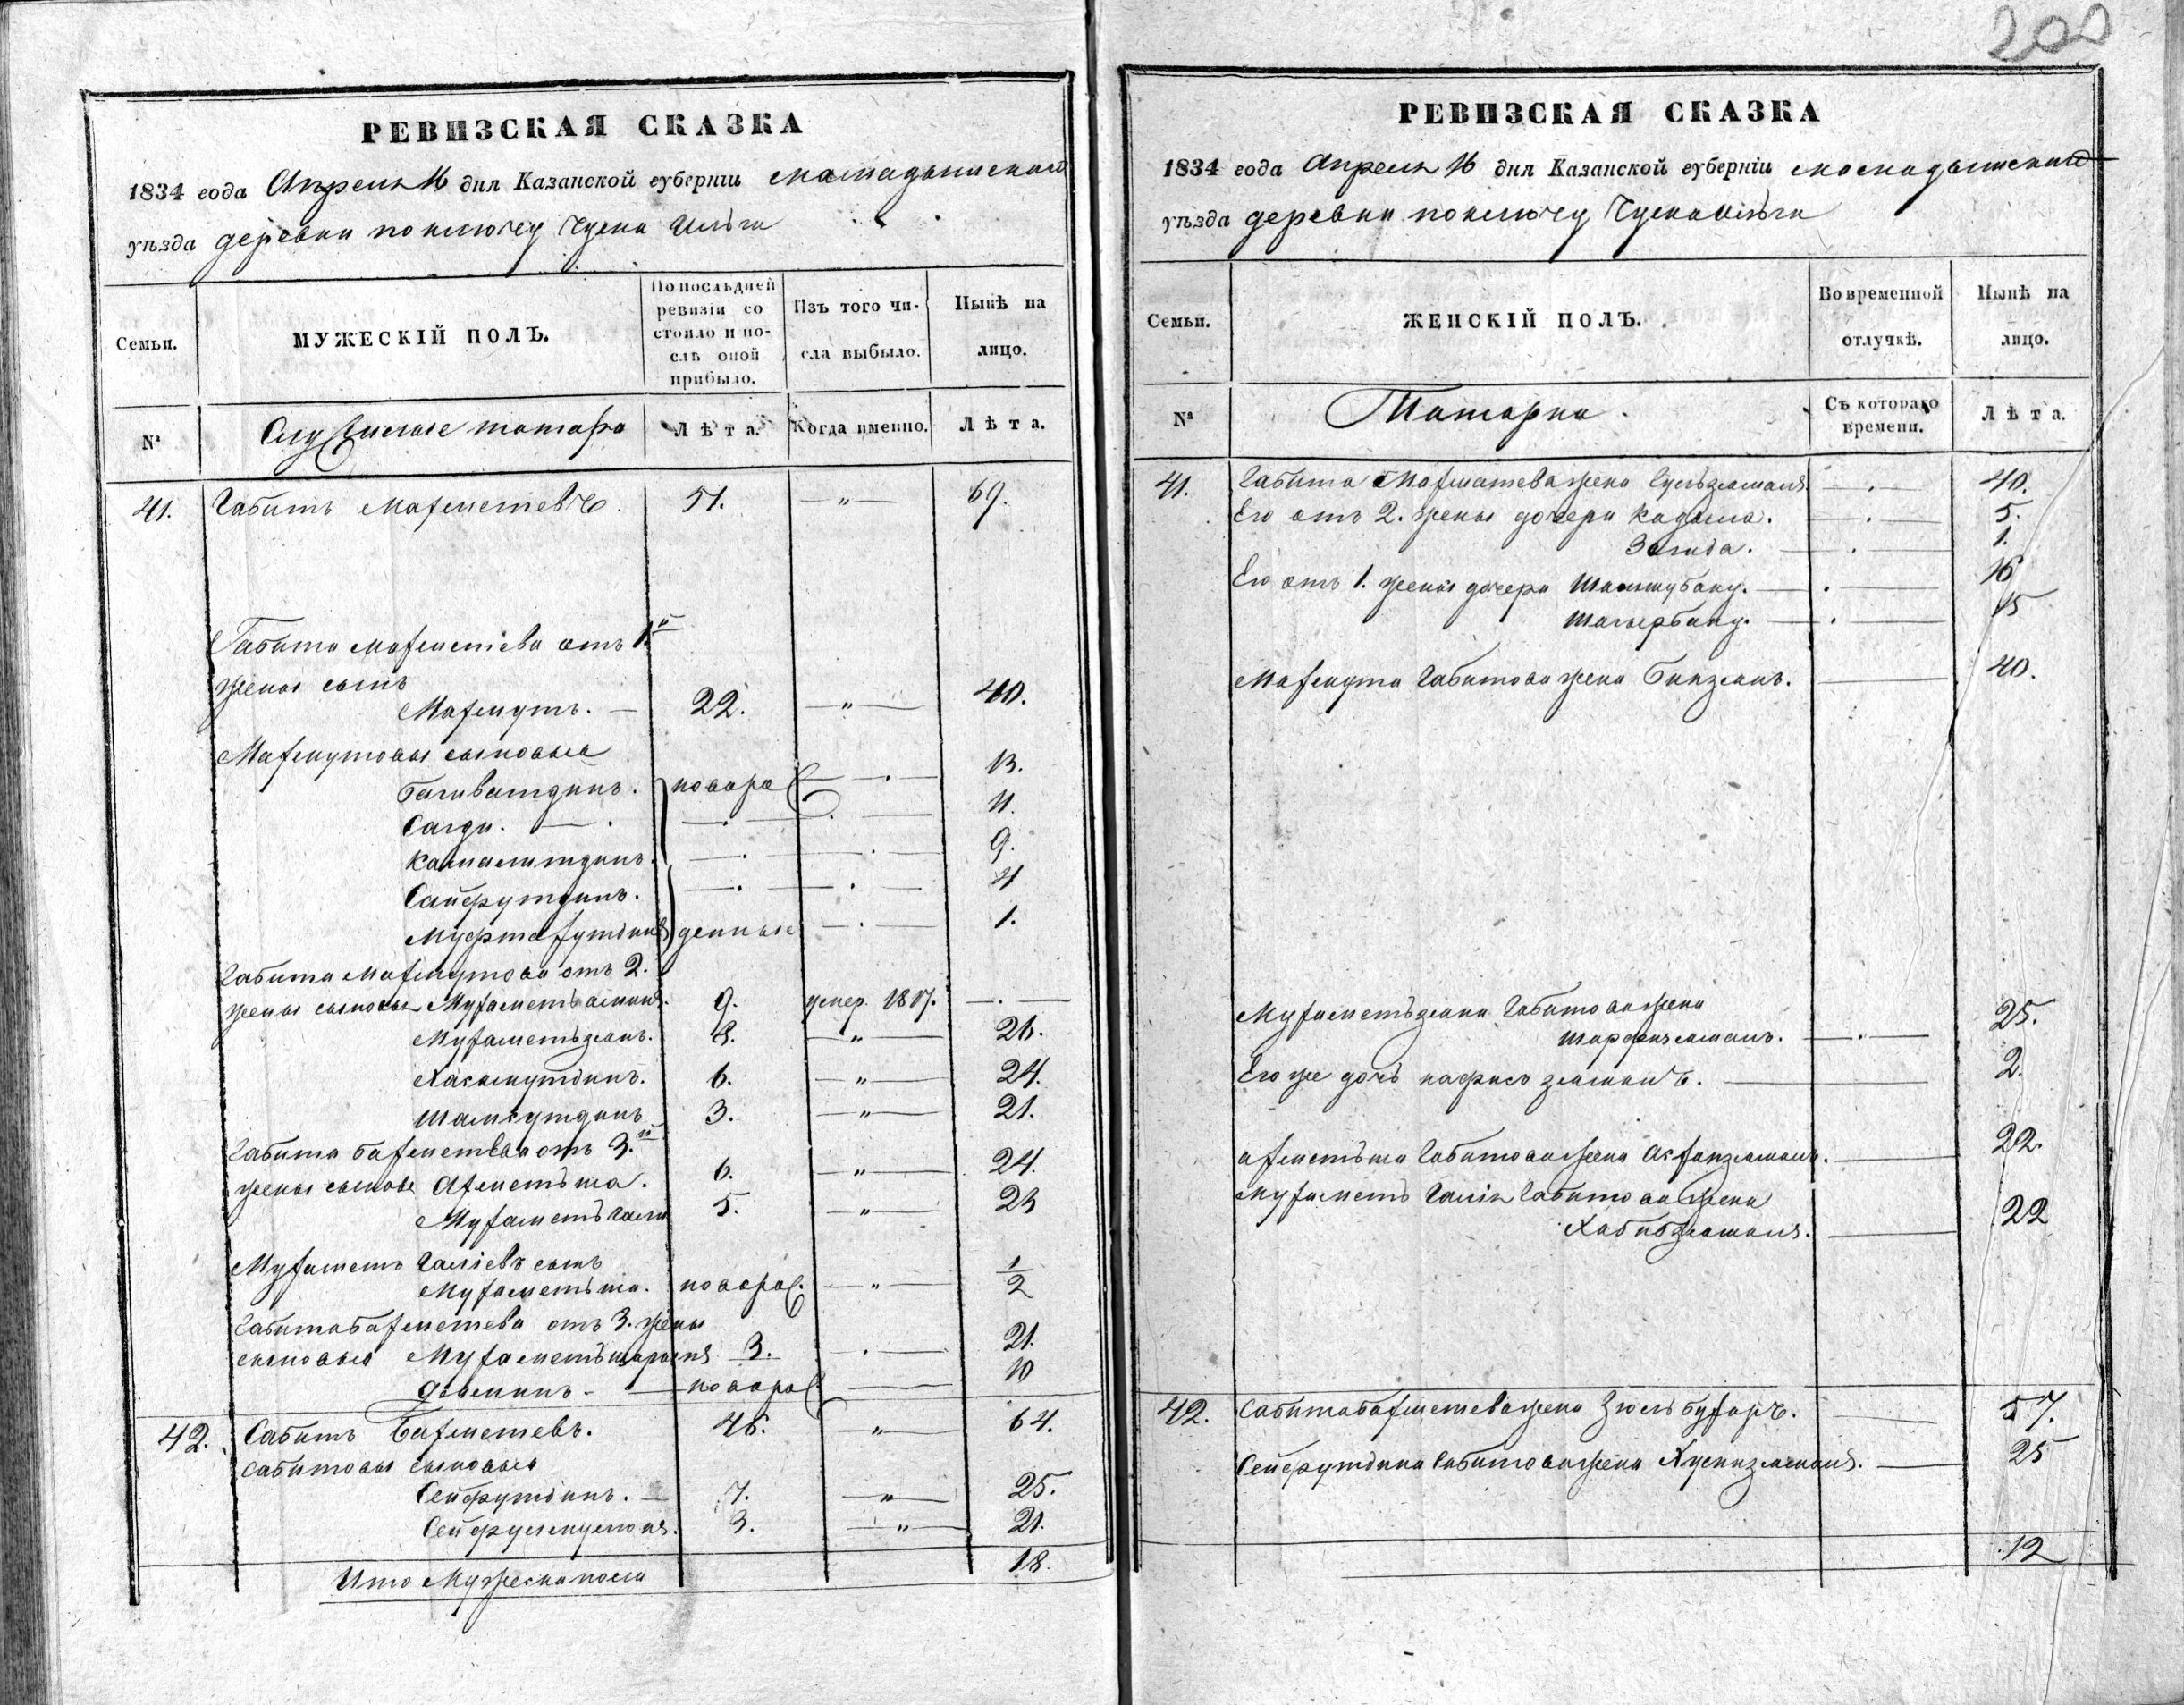 202
РЕВИЗСКАЯ СКАЗКА
1834 года Апреля 16 дня Казанской губерніи Мамадышскаго
уѣзда деревни по ключу Чумка Ильги
Семьи.
МУЖЕСКІЙ ПОЛЪ.
По послѣдней ревизіи состояло и послѣ оной прибыло.
Изъ того числа выбыло.
Нынѣ на лицо.
№
Служилые татара
Лѣта.
Когда именно.
Лѣта.
41. Габитъ Махметевъ. 51. — " — 69.
Габита Махметева отъ 1й
жены сынъ
Махмутъ. — 22. — " — 40.
Махмутовы сыновья
Багиватдинъ. новорож 13.
Сагди. — 11.
Камалитдинъ. 9.
Сайфутдинъ. 4
Муфтахутдинъ денные 1.
Габита Махмутова отъ 2.
жены сыновья Мухаметъаминъ. 9. умер. 1817. — . —
Мухаметьзянъ. 8. — " — 26.
Хасамутдинъ. 6. — " — 24.
Шамсутдинъ 3. — " — 21.
Габита Бахметева отъ 3.й
жены сынове Ахметьша. 6. — " — 24.
Мухаметь Гали 5. — " — 23
Мухаметъ Галіевъ сынъ
Мухаметьша. новорож. — " — 1/2
Габита Бахметева отъ 3. жены
сыновья Мухаметьшарыпъ 3. 21.
новорож 10
42. Сабитъ Бахметевъ. 46. — " — 64.
Сабитовы сыновья
Сейфутдинъ. — 7. — " — 25.
Сейфулмулюкъ. 3. — " — 21.
Итого Мужеска пола 18.
РЕВИЗСКАЯ СКАЗКА
1834 года Апреля 16 дня Казанской губерніи Мамадышскаго
уѣзда деревни по ключу Чумка Ильги
Семьи.
ЖЕНСКІЙ ПОЛЪ.
Во временной отлучкѣ.
Нынѣ на лицо.
№
Татарки.
Съ котораго времени.
Лѣта.
41. Габита Махматева жена 40.
Его отъ 2. жены дочери Кадыма. 5.
Загида. 1.
Его отъ 1. жены дочери Шамшубану. 16
Шагербану. 15
Махмута Габитова жена Бикзянъ. 40.
Мухаметьзяна Габитова жена
25.
Его же дочь 2.
Ахметьши Габитова жена 22.
Мухаметь Галія Габитова жена
Хабибзямаля. 22
42. Сабита Бахметева жена Зюльбухаръ. 57.
Сейфутдина Сабитова жена Хуснизямаля. 25
12